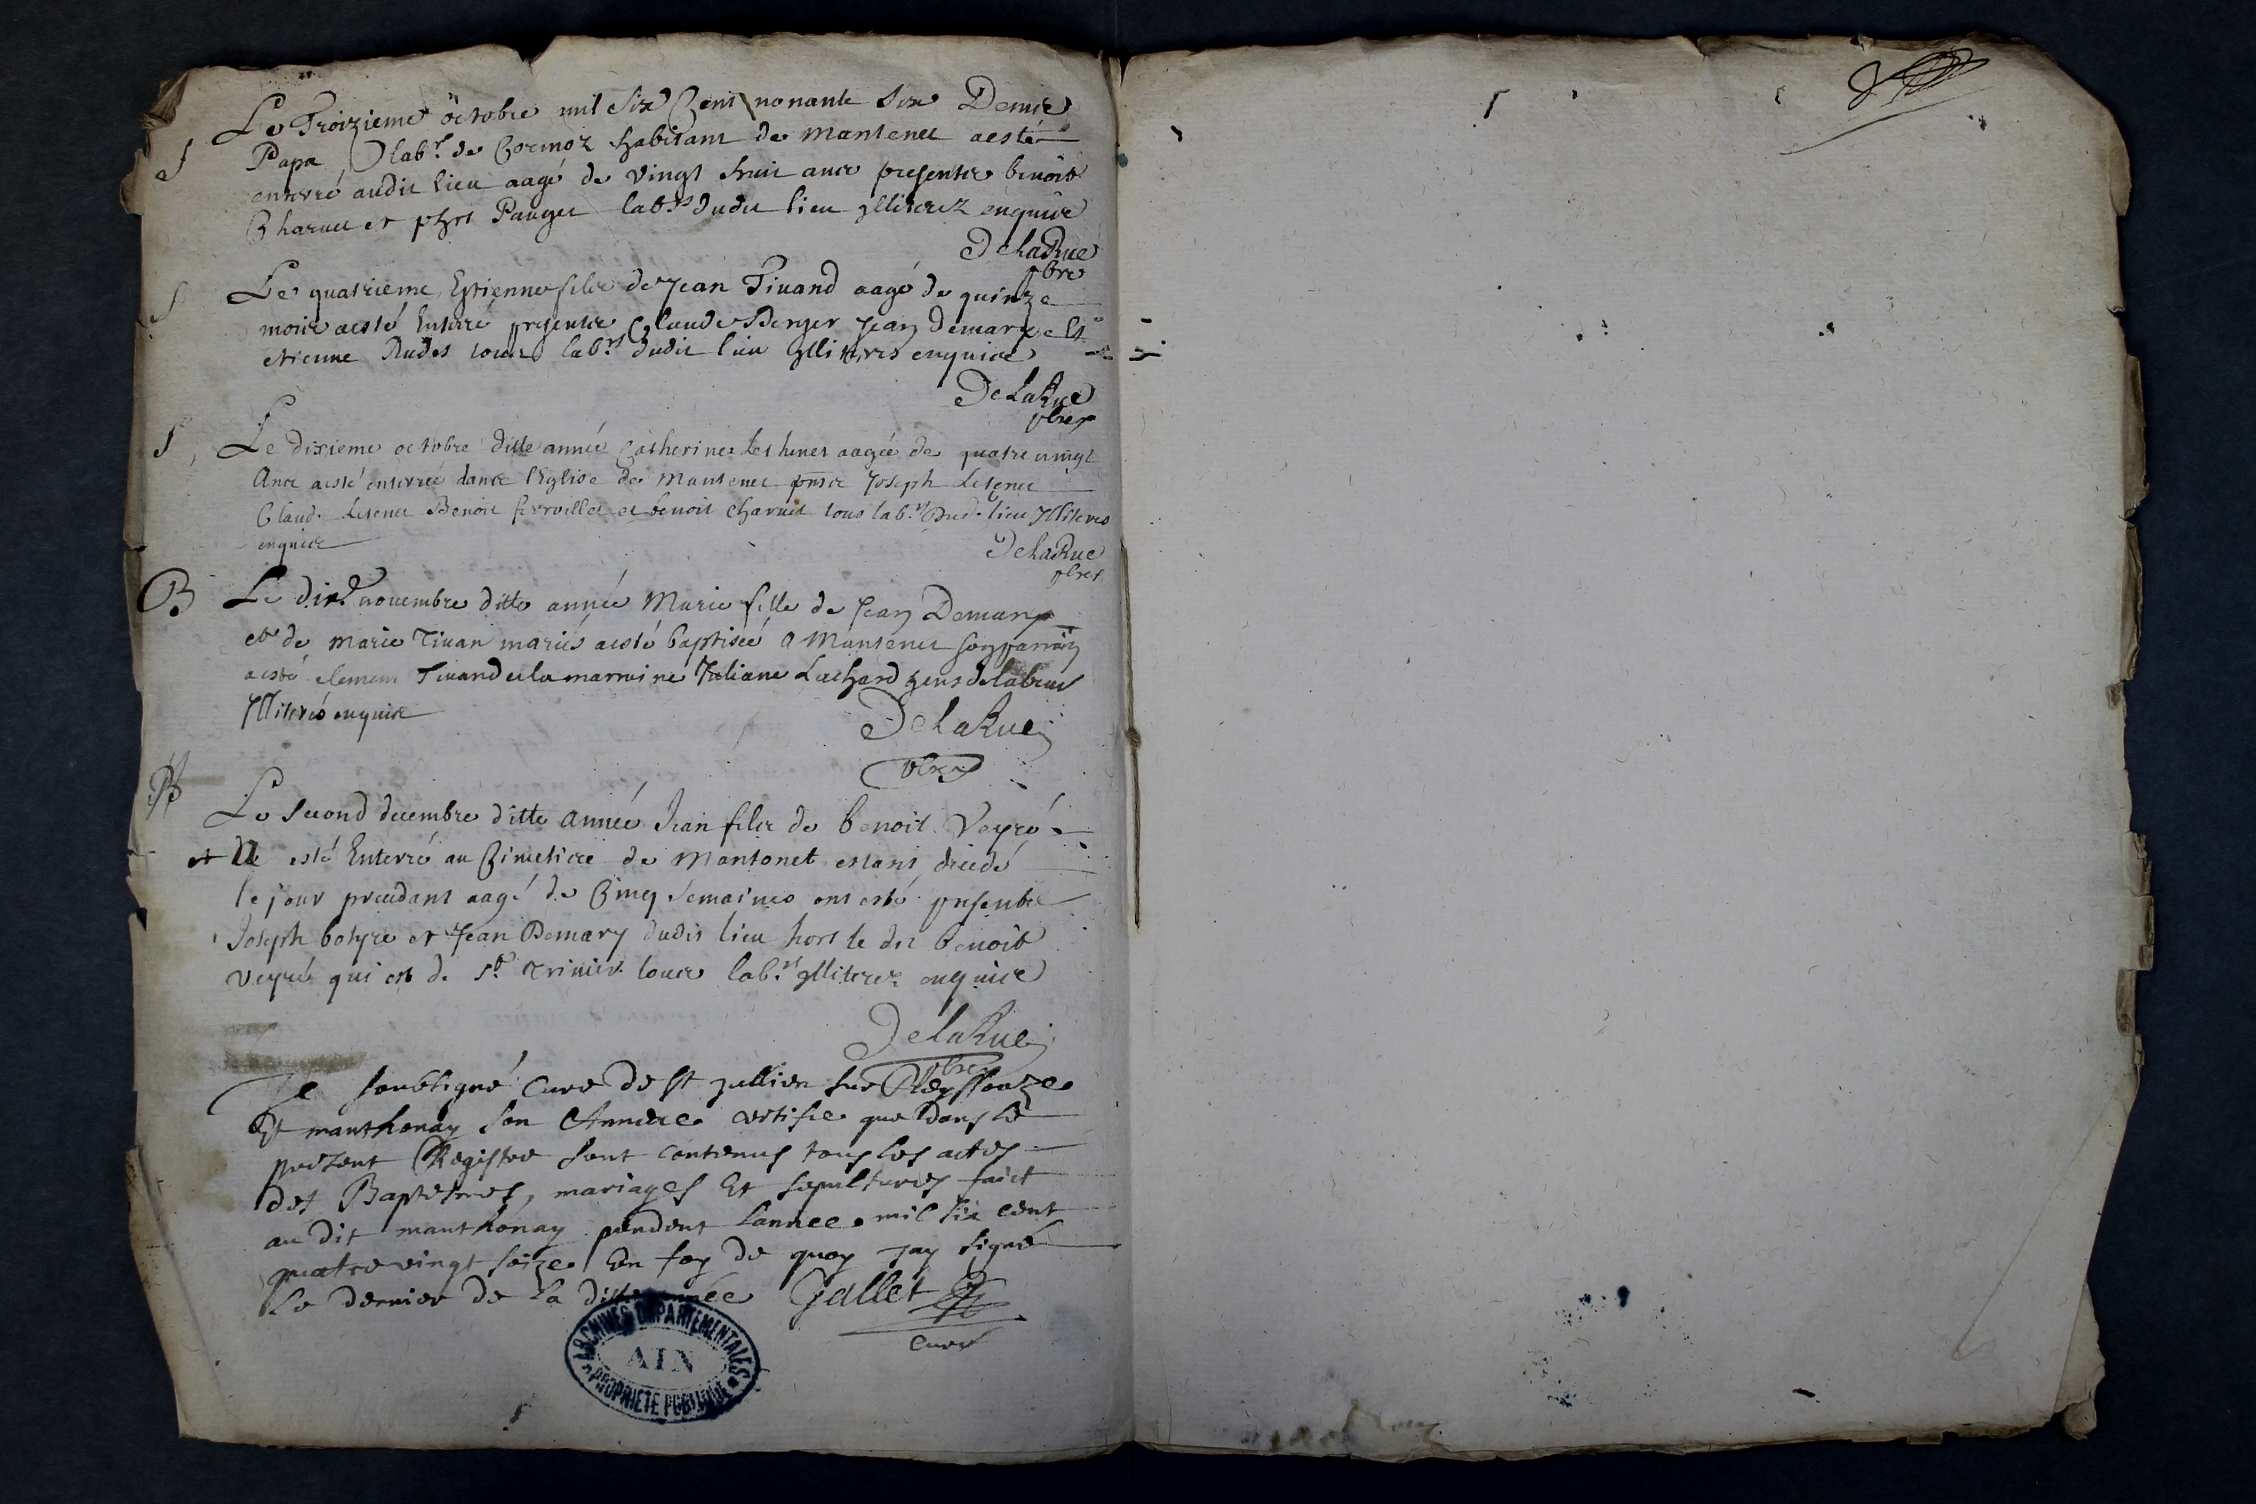 Le Troizieme octobre mil six Cent nonante six Denis
S
Papa labr. de Cormoz habitant de Mantenet a esté
enterré audit lieu aagé de vingt huit ans presents benoit
Charvet et phrt Pauget labrs dudit lieu jlliterez enquis
DelaRue
pbre
S
Le quatrieme Estienne fils de Jean Tivand aagé de quinze
mois a esté Enterré presents Claude Berger Jean Demarx et
etienne Rudes tous labrs dudit lieu jlliteres enquis
DeLaRue
pbre
S
Le dixieme octobre ditte année Catherine aagée de quatre vingt
Ans a esté enterrée dans l'Eglise de Mantenet pnts Joseph Letenet
Claude Letenet Benoit ferroillet et benoit charvet tous labrs dud. lieu Jlliteres
enquis
DelaRue
pbre
B
Le dixe. novembre ditte année Marie fille de Jean Demarx
et de Marie Tivan mariés a esté baptisée a Mantenet son parrain
a esté clement Tivand et la marraine Juliane Luchard gens de labeur
Jlliterés enquis
DelaRue
pbre
Le second decembre ditte année Jean fils de benoit Veyré
et a esté Enterré au Cimetiere de Mantonet estant decedé
le jour precedant aagé de Cinq semaines ont esté presents
Joseph botyre et Jean Demarx dudit lieu hors le dit benoit
Veyré qui est de St. trinier tous labrs jlliterez enquis
DelaRue
pbre
Je soubsigné Curé de St jullien sur Reyssouze
Et manthonay son Annexe certifie que dans le
present Registre sont contenus tous les actes
des Baptesmes, mariages Et sepultures faict
au dit manthonay pendent l'année mil six cent
quatre vingt seize En foy de quoy jay signé
le dernier de la ditte année Gallet
curé
ARCHIVES DEPARTEMENTALES
AIN
PROPRIETE PUBLIQUE